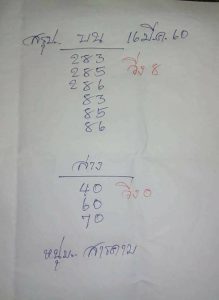 สรุป บน 16 มี.ค. 60
283
285 วิ่ง 8
286
83
85
86
ล่าง
40
60 วิ่ง 0
70
หนุ่ม สารคาม